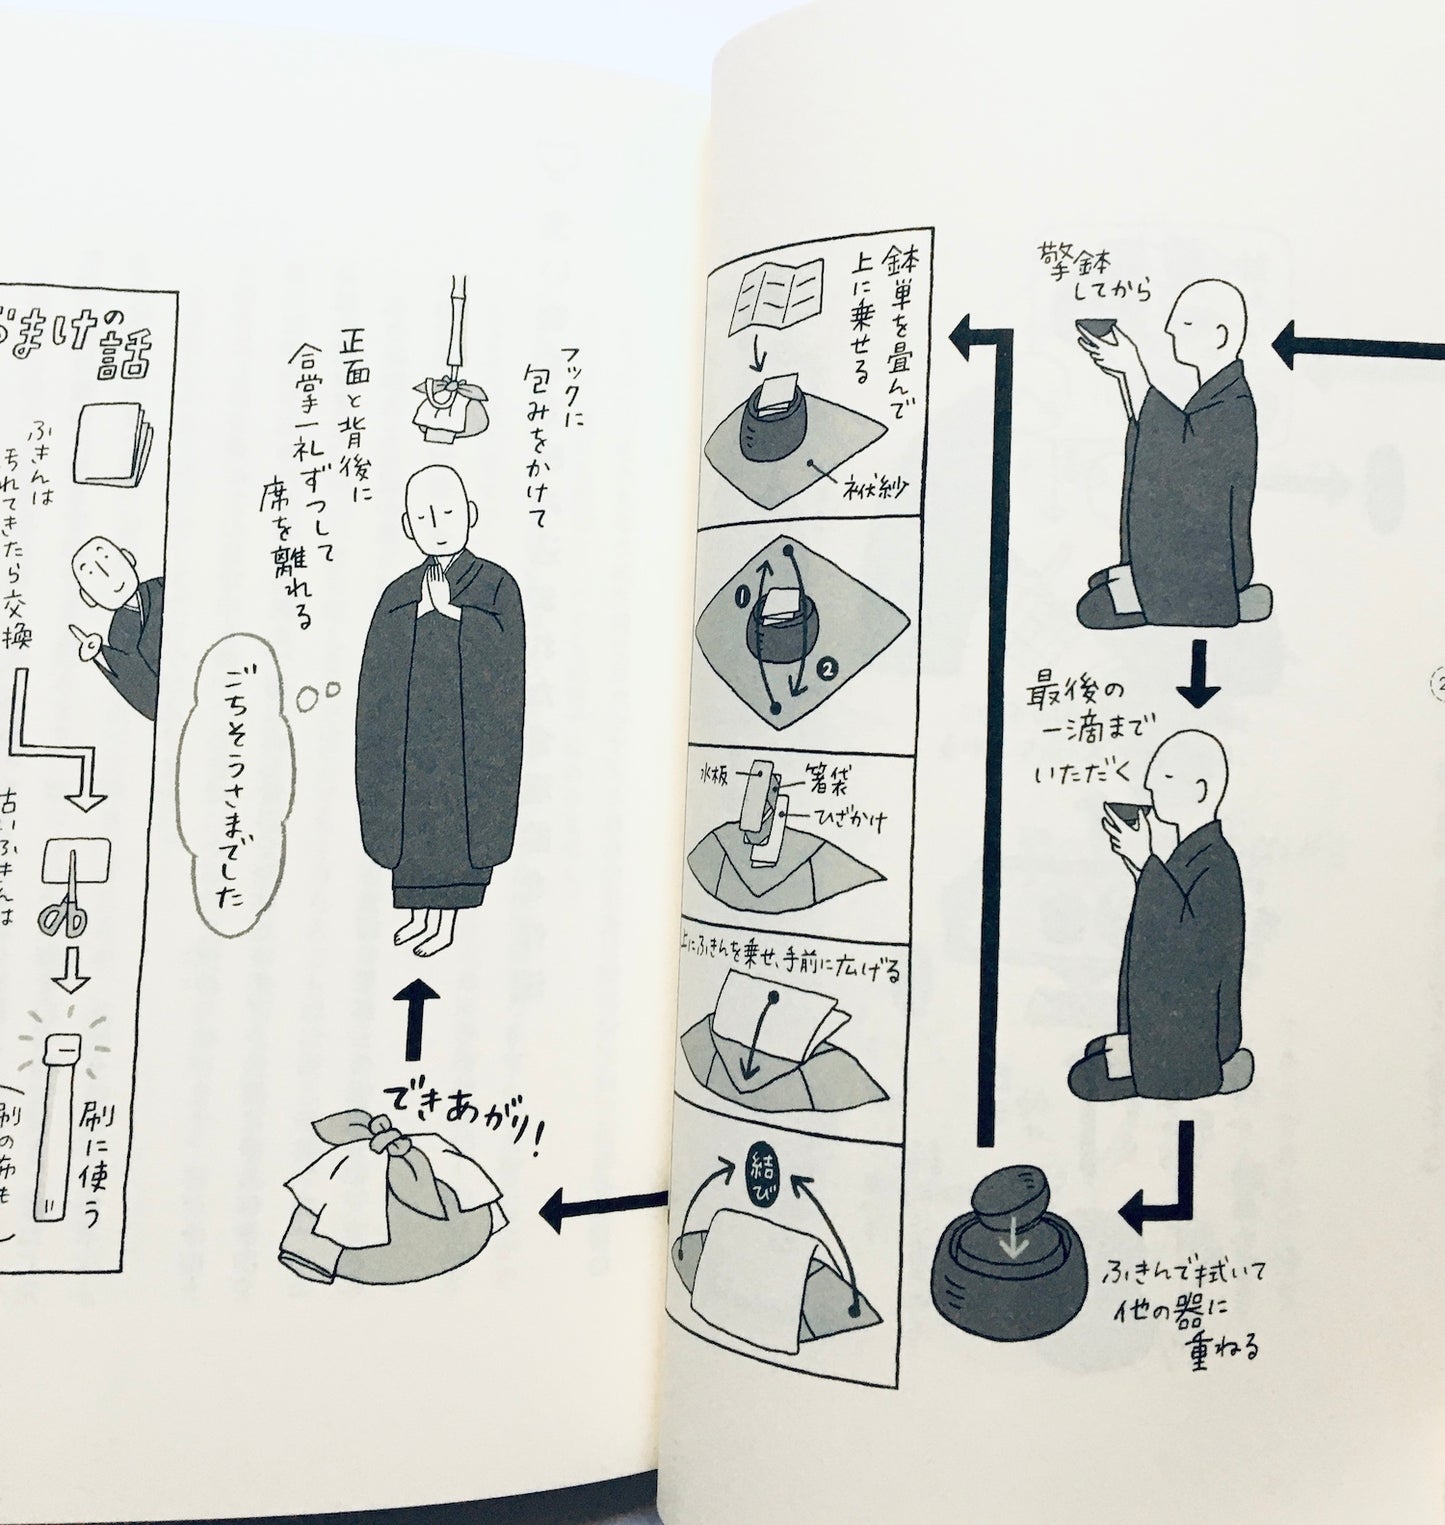 擎鉢
してから
最後の
一滴まで
いただく
ふきんで拭いて
他の器に
重ねる
鉢単を畳んで
上に乗せる
袱紗
❶
❷
水板
箸袋
ひざかけ
上にふきんを乗せ、手前に広げる
結び
できあがり!
フックに
包みをかけて
正面と背後に
合掌一礼ずつして
席を離れる
ごちそうさまでした
おまけの
話
ふきんは
汚れてきたら交換
古いふきんは
刷に使う